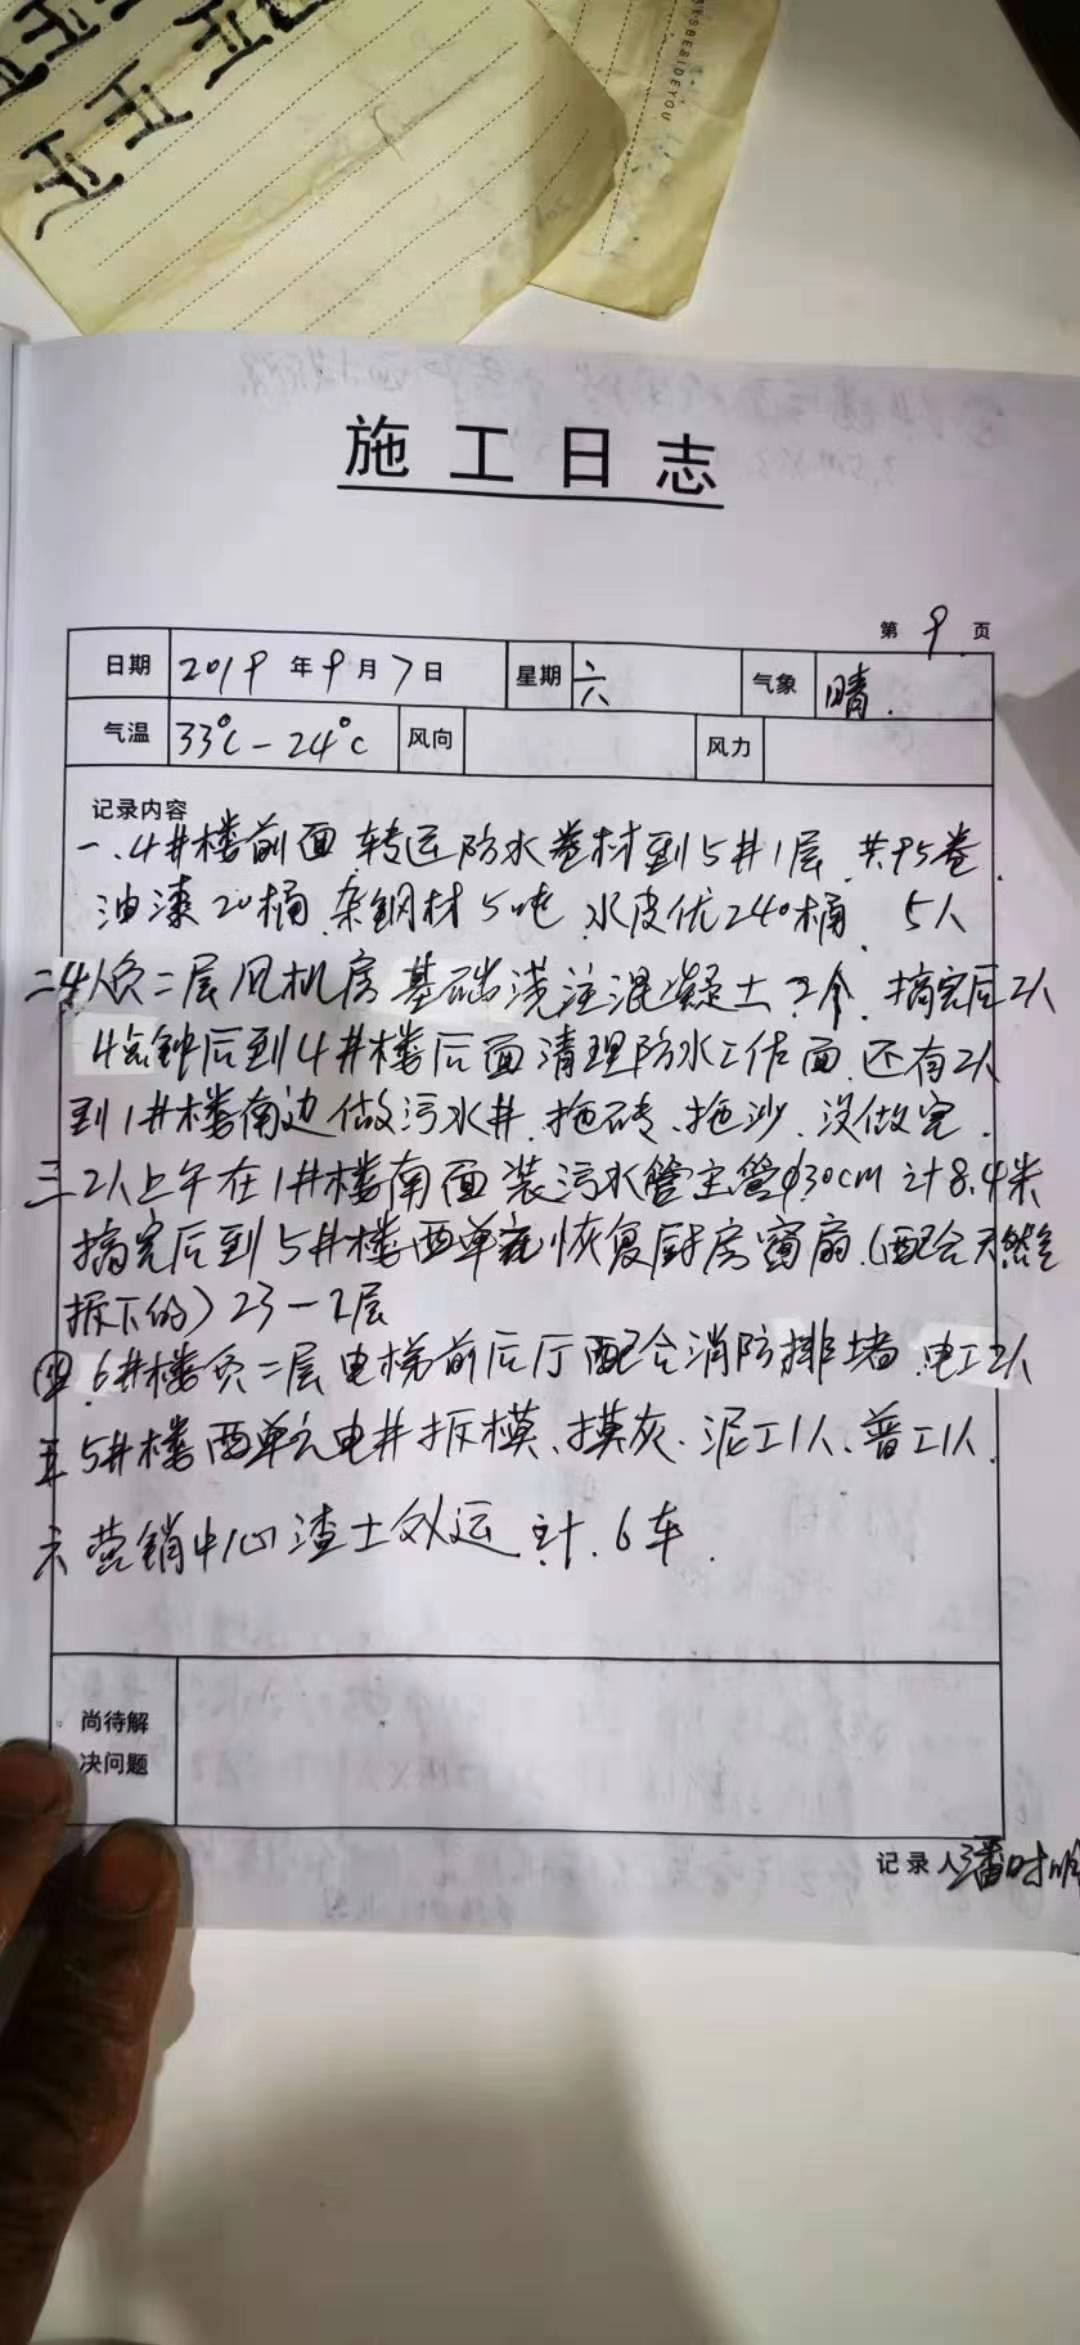 工 工 工
工 工
工
YSBESIDEYOU
施工日志
第 9 页
日期 2019 年 9 月 7 日 星期 六 气象 晴.
气温 33℃-24℃ 风向 风力
记录内容
一、4井楼前面 转运防水卷材到5井1层 共95卷.
油漆20桶.杂钢材5吨.水皮优240桶. 5人
二4人负二层风机房基础浇注混凝土2个.搞完后2人
4点钟后到4井楼后面清理防水工作面.还有2人
到1井楼南边做污水井.拖砖、拖沙、没做完.
三2人上午在1井楼南面装污水管主管φ30cm计8.4米
搞完后到5井楼西单元恢复厨房窗扇.(配合天然气
拆下的)23-2层
四.6井楼负二层电梯前后厅配合消防排堵.电工2人
五5井楼西单元电井拆模、摸灰.泥工1人、普工1人.
六营销中心渣土外运 计.6车.
尚待解
决问题
记录人 潘时